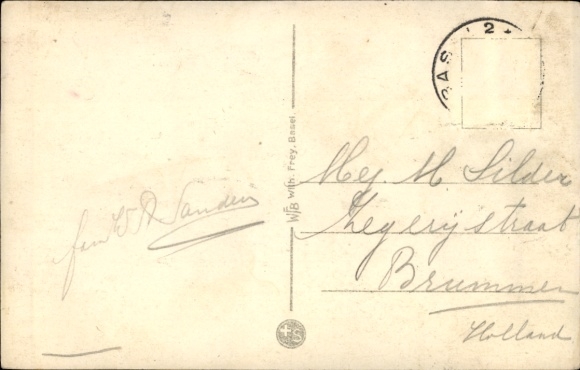 BAS 2
W/B Wilh. Frey, Basel.
Mej. M. Silder
straat
Brummen
Holland
fam W Sanders
S